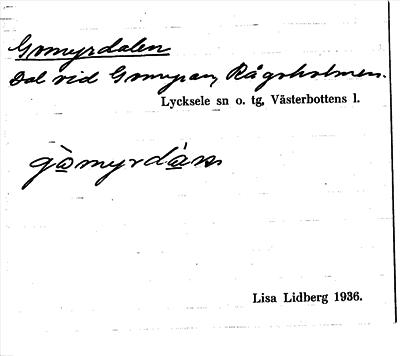 Gomyrdalen
Dal vid Gomyran, Rågoholmen.
Lycksele sn o. tg, Västerbottens l.
gòmyrdàn
Lisa Lidberg 1936.